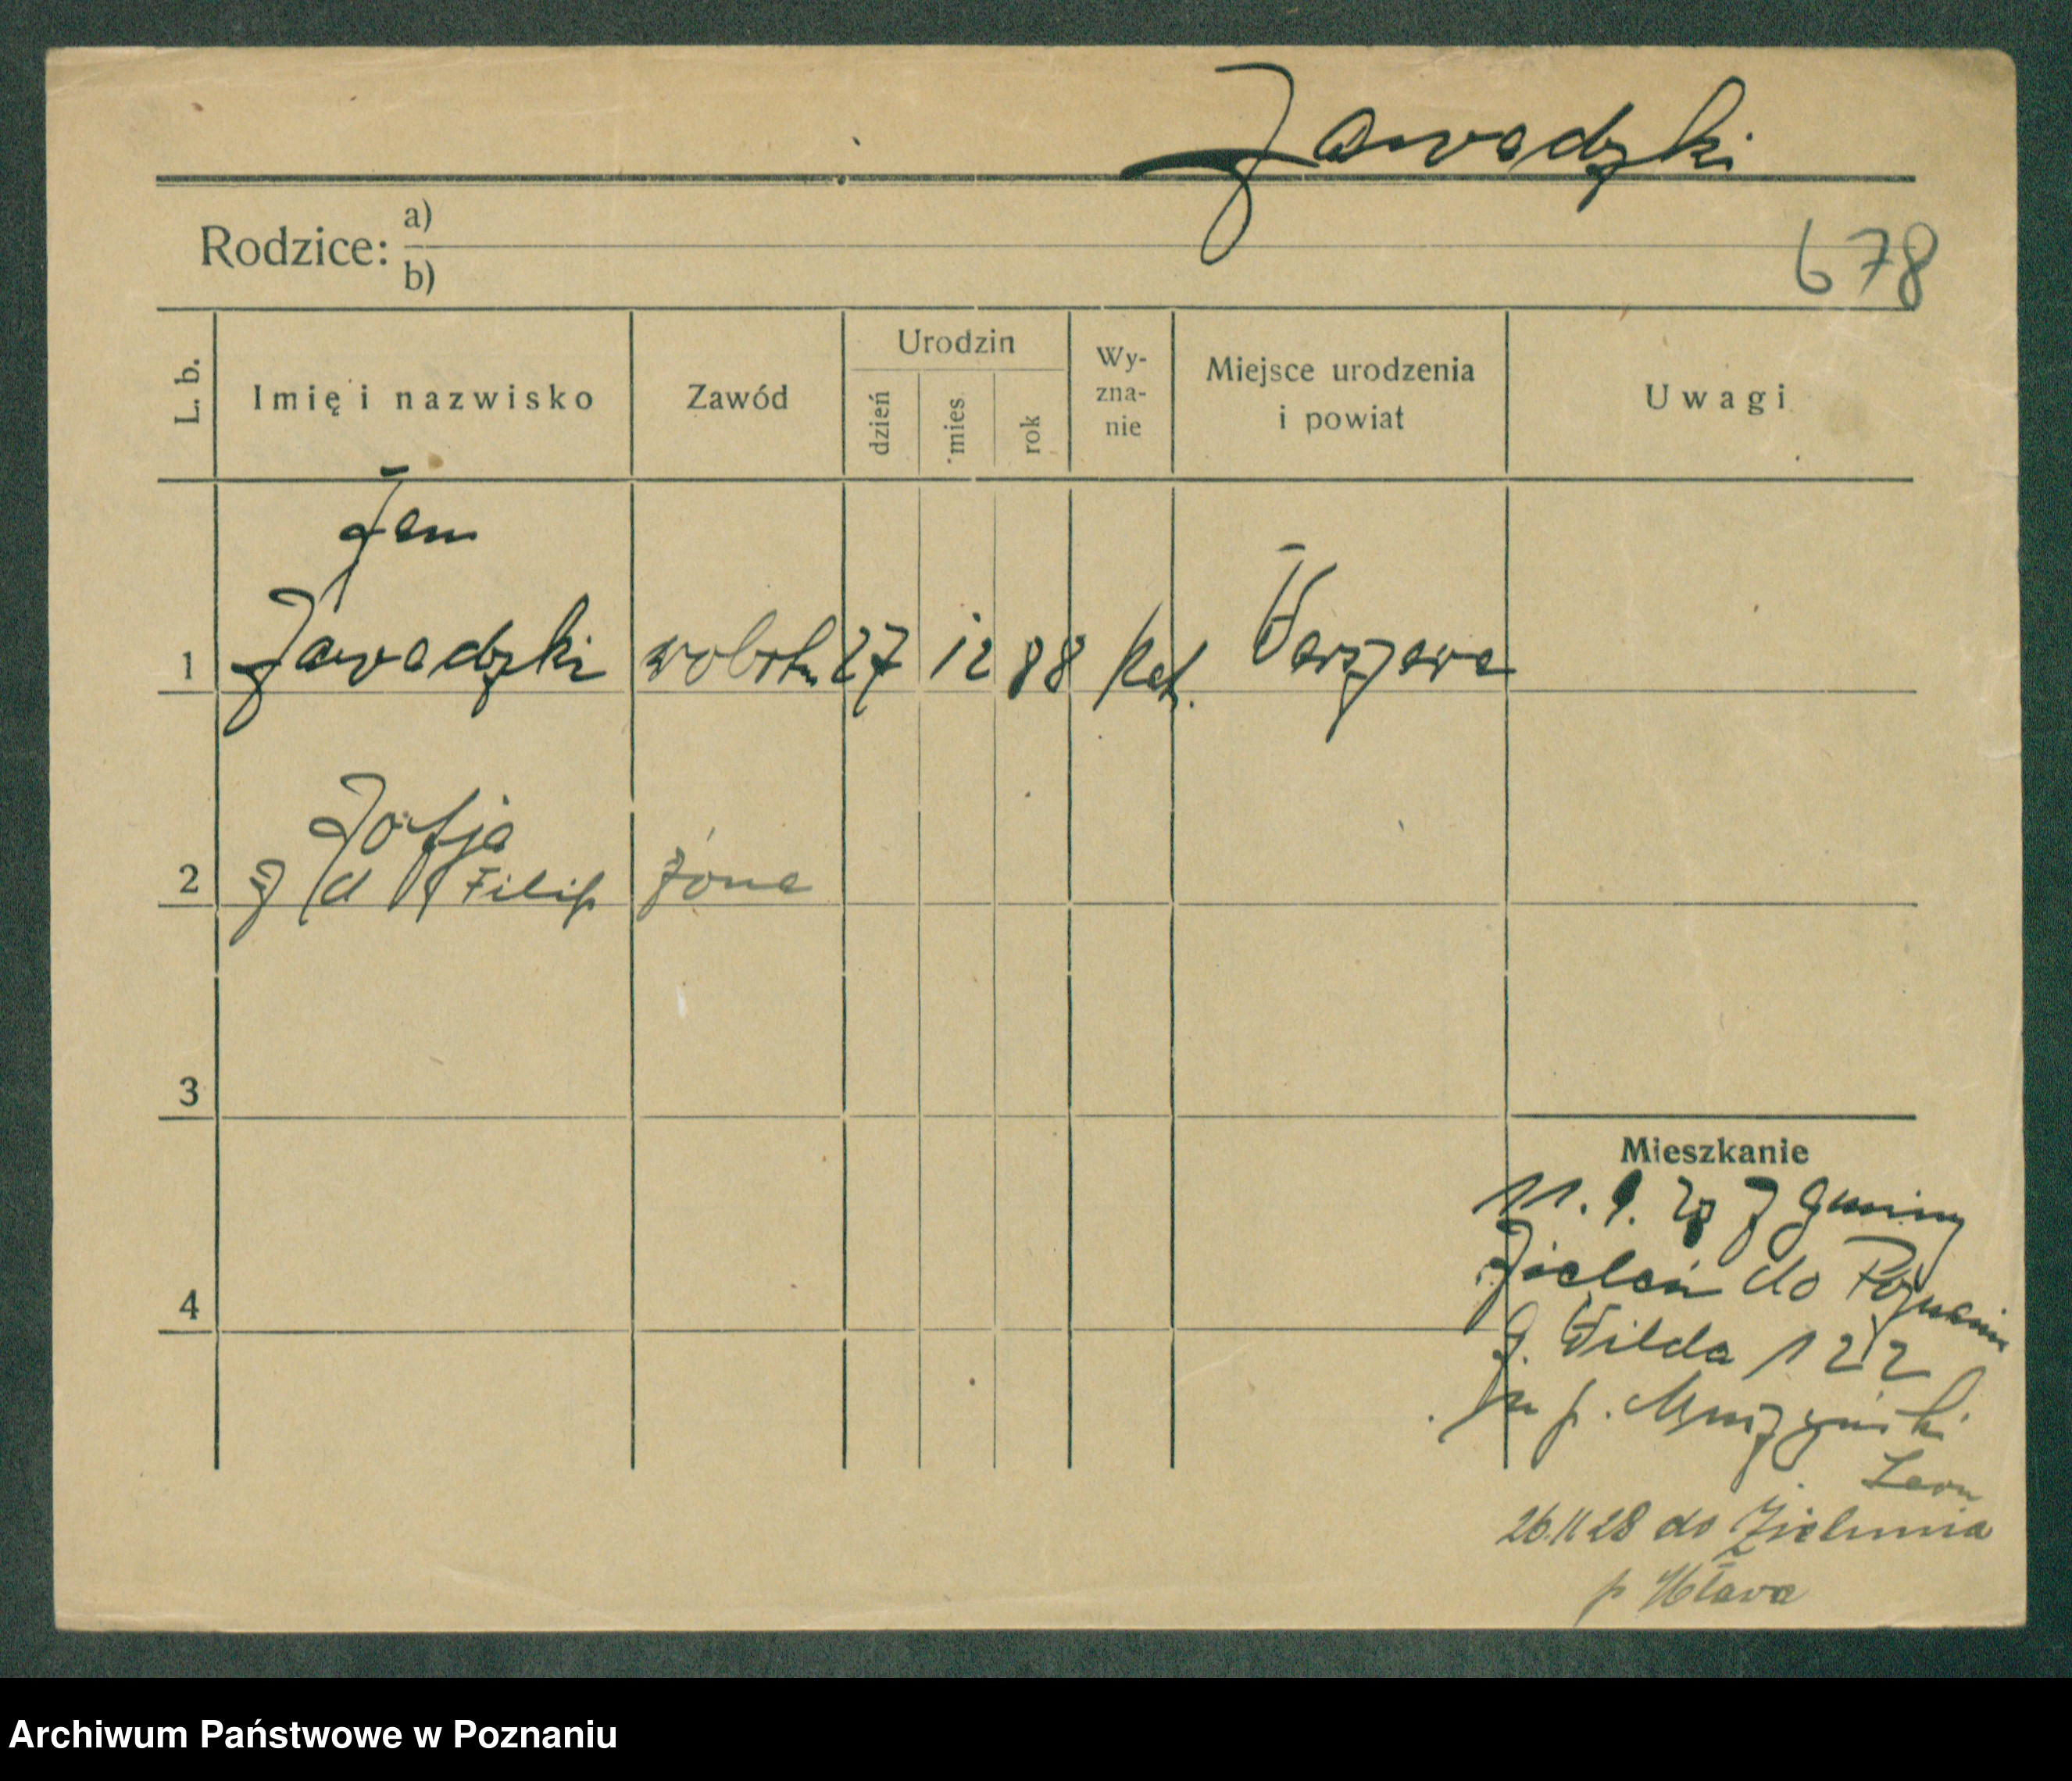 Zawadzki
Rodzice: a)
b)
678
L. b.
Imię i nazwisko
Zawód
Urodzin
dzień
mies
rok
Wy-
zna-
nie
Miejsce urodzenia
i powiat
Uwagi
Jan
1 Zawadzki robotn 27 12 88 kat. Warszawa
Zofja
2 z d Filip żona
3
Mieszkanie
11. 9. 28 z gminy
Zieleń do Poznania
4
G. Wilda 122
p.
Leon
26.11 28 do Zielunia
p Mława
Archiwum Państwowe w Poznaniu